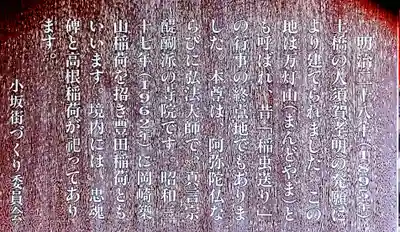 明治二十八年(1895)、
土橋の大須賀孝明の発願に
より建てられました。この
地は万灯山(まんどやま)と
も呼ばれ、昔「稲虫送り」
の行事の終息地でもありま
した。本尊は、阿弥陀仏な
らびに弘法大師で、真言宗
醍醐派の寺院です。昭和三
十七年(1962)に岡崎栄
山稲荷を招き豊田稲荷とも
いいます。境内には、忠魂
碑と高根稲荷が祀ってあり
ます。
小坂街づくり委員会